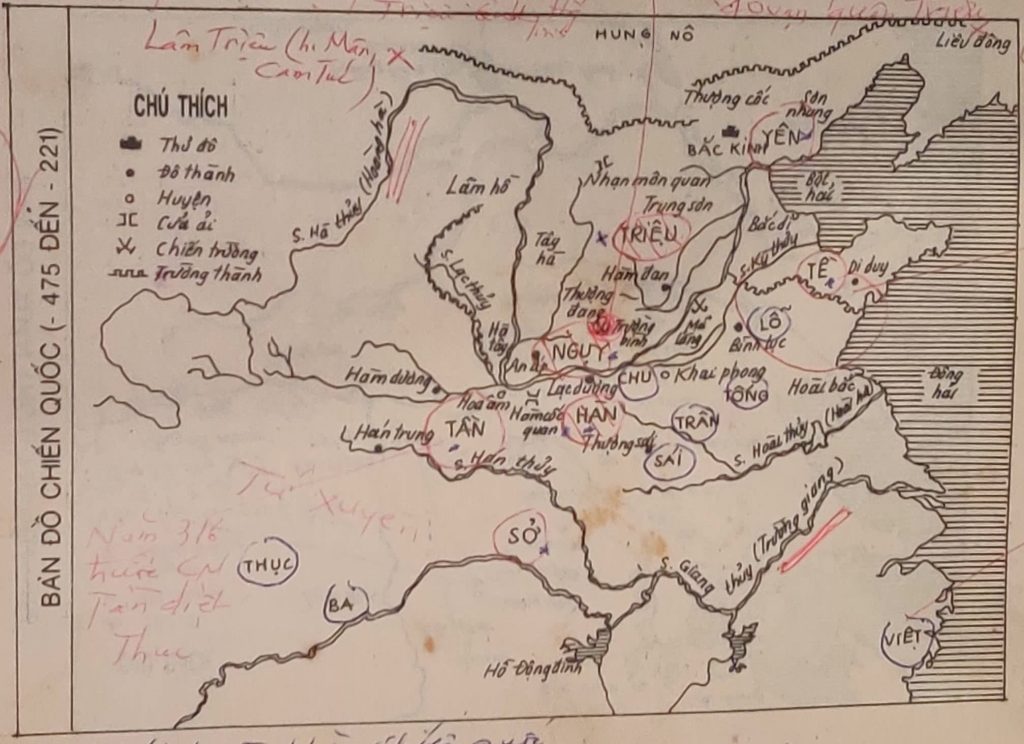 HUNG NÔ
Liêu đông
Lâm Triệu (h. Mân, x
Cam Túc)
BẢN ĐỒ CHIẾN QUỐC (- 475 ĐẾN - 221)
CHÚ THÍCH
Thủ đô
Đô thành
Huyện
Cửa ải
Chiến trường
Trường thành
S. Hà thủy (Hoàng hà)
Lâm hồ
Thượng cốc
Sơn
nhung
YÊN
BẮC KINH
Nhạn môn quan
Trung sơn
Bột
hải
TRIỆU
Bắc di
Tây
hà
S. Lạc thủy
Hàm đan
TỀ
Di duy
Thượng
đang
Trường
bình
Mã
lăng
LỖ
Bình lục
Hà
tây
An ấp
NGỤY
Lạc dương
CHU
Khai phong
TỐNG
Hoài bắc
Đông
hải
Hàm dương
Hoa âm
Hàm cốc
quan
HÀN
TRẦN
S. Hoài thủy (Hoài hà)
TẦN
Hán trung
S. Hán thủy
SÁI
Tứ xuyên
Năm 316
trước CN
Tần diệt
Thục
THỤC
BA
SỞ
S. Giang
thủy (Trường giang)
VIỆT
Hồ Động đình